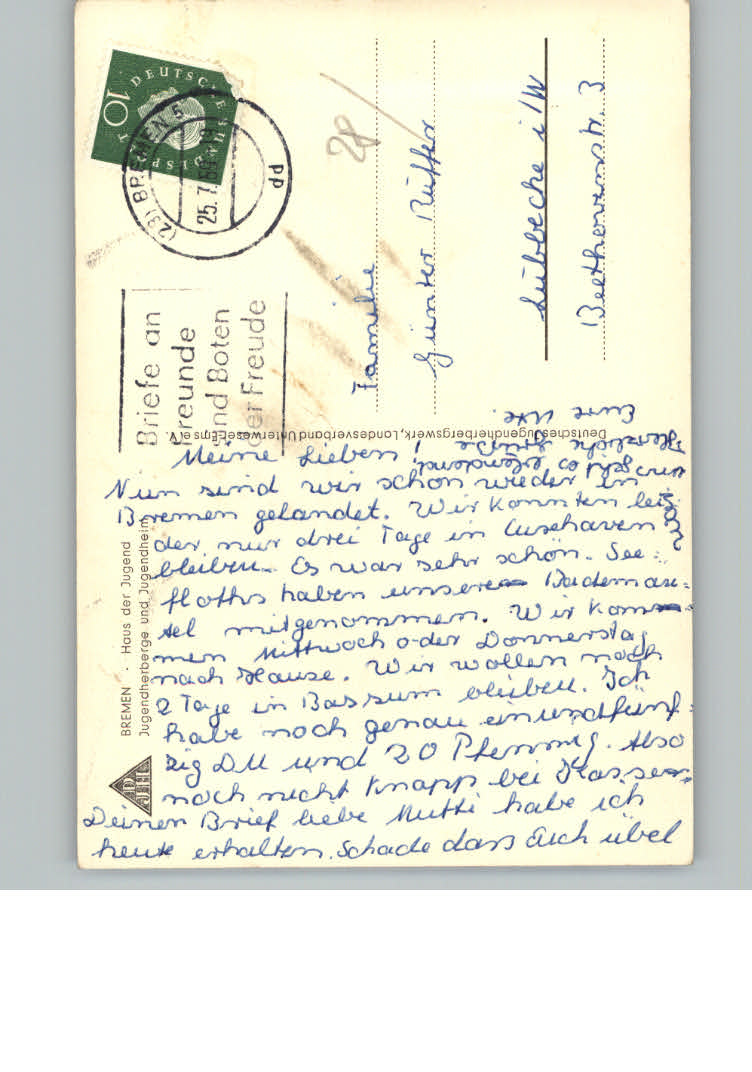 DEUTSCHE BUNDESPOST
10
(23) BREMEN 5
25.7.59-19
pp
Briefe an
Freunde
sind Boten
der Freude
28
Familie
Günter Rüffer
Lübbecke i/W
Beethovenstr. 3
Deutsches Jugendherbergswerk, Landesverband Unterweser-Ems e.V.
BREMEN · Haus der Jugend
Jugendherberge und Jugendheim
DJH
Meine Lieben!
Nun sind wir schon wieder in
Bremen gelandet. Wir konnten lei=
der nur drei Tage in Cuxhaven
bleiben. Es war sehr schön. See=
floths haben unseren Bademan=
tel mitgenommen. Wir kom=
men Mittwoch oder Donnerstag
nach Hause. Wir wollen noch
2 Tage in Bassum bleiben. Ich
habe noch genau einundfünf=
zig DM und 20 Pfennig. Also
noch nicht knapp bei Kasse.
Deinen Brief liebe Mutti habe ich
heute erhalten. Schade dass Euch übel
Herzliche Grüße
Eure Ute.